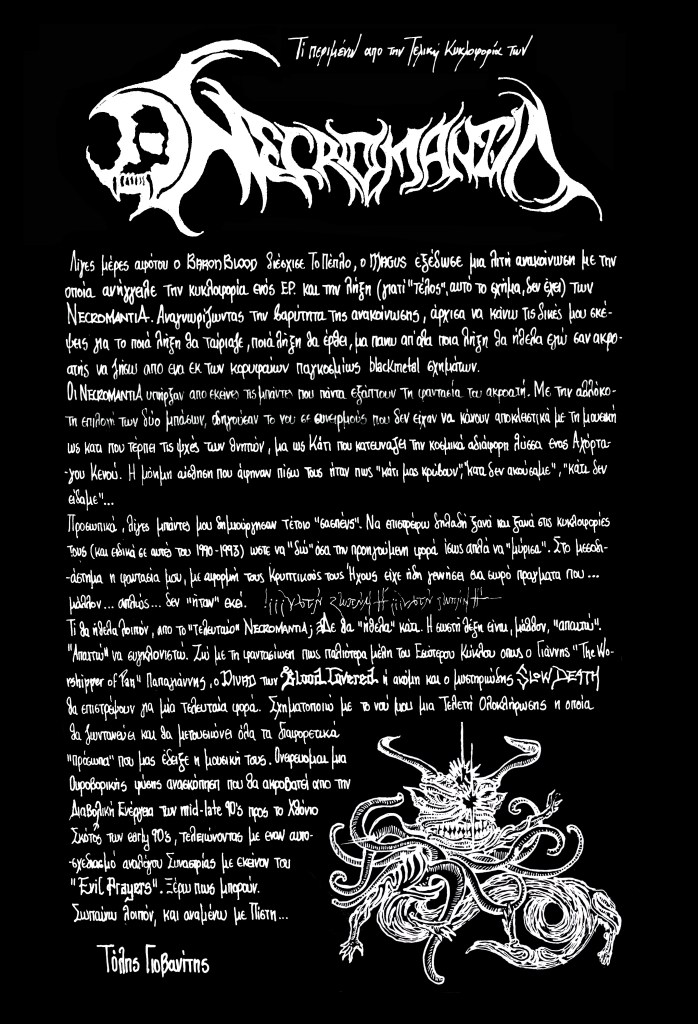 Τι περιμένω απο την Τελική Κυκλοφορία των
NECROMANTIA
Λίγες μέρες αφότου ο BARON BLOOD διέσχισε Το Πέπλο, ο MAGUS εξέδωσε μια λιτή ανακοίνωση με την
οποία ανήγγειλε την κυκλοφορία ενός EP. και την λήξη (γιατί "τέλος", αυτό το σχήμα, δεν έχει) των
NECROMANTIA. Αναγνωρίζωντας την βαρύτητα της ανακοίνωσης, άρχισα να κάνω τις δικές μου σκέ-
ψεις για το ποιά λήξη θα ταίριαζε, ποιά λήξη θα έρθει, μα πανω απ'όλα ποια λήξη θα ήθελα εγώ σαν ακρο-
ατής να ζήσω απο ενα εκ των κορυφαίων παγκοσμίως blackmetal σχημάτων.
Οι NECROMANTIA υπήρξαν απο εκείνες τις μπάντες που πάντα εξάπτουν τη φαντασία του ακροατή. Με την αλλόκο-
τη επιλογή των δύο μπάσων, οδηγούσαν το νου σε συνειρμούς που δεν είχαν να κάνουν αποκλειστικά με τη μουσική
ως κατι που τέρπει τις ψυχές των θνητών, μα ως Κάτι που κατευνάζει την κοσμικά αδιάφορη λύσσα ενος Αχόρτα-
-γου Κενού. Η μόνιμη αίσθηση που άφηναν πίσω τους ήταν πως "κάτι μας κρύβουν", "κάτι δεν ακούσαμε", "κάτι δεν
είδαμε"...
Προσωπικά, λίγες μπάντες μου δημιούργησαν τέτοιο "σασπένς". Να επιστρέφω δηλαδή ξανά και ξανά στις κυκλοφορίες
τους (και ειδικά σε αυτές του 1990-1993) ωστε να "διώ" όσα την προηγούμενη φορά ίσως απλά να "μύρισα". Στο μεσοδι-
-άστημα η φαντασία μου, με αφορμή τους Κρυπτικούς τους Ήχους είχε ήδη γεννήσει ενα σωρό πραγματα που...
μάλλον... απλώς... δεν "ήταν" εκεί.
Τι θα ήθελα λοιπόν, απο το "τελευταίο" NECROMANTIA; Δε θα "ήθελα" κάτι. Η σωστή λέξη είναι, μάλλον, "απαιτώ".
"Απαιτώ" να συγκλονιστώ. Ζώ με τη φαντασίωση πως παλιότερα μέλη του Εσώτερου Κύκλου οπως ο Γιάννης "The Wo-
rshipper of Pan" Παπαγιάννης, ο DIVAD των Blood Covered ή ακόμη και ο μυστηριώδης SLOW DEATH
θα επιστρέψουν για μία τελευταία φορά. Σχηματοποιώ με το νού μου μια Τελετή Ολοκλήρωσης η οποία
θα ζωντανεύει και θα μετουσιώνει όλα τα διαφορετικά
"πρόσωπα" που μας έδειξε η μουσική τους. Ονειρευομαι μια
Ουροβορικής φύσης ανασκόπηση που θα ακροβατεί απο την
Διαβολική Ενέργεια των mid-late 90's προς το Χθόνιο
Σκότος των early 90's, τελειώνοντας με εναν αυτο-
-σχεδιασμό αναλόγου Συνασπιράς με εκεινον του
"Evil Prayers". Ξέρω πως μπορούν.
Σωπαίνω λοιπόν, και αναμένω με Πίστη...
Τόλης Γιοβανίτης